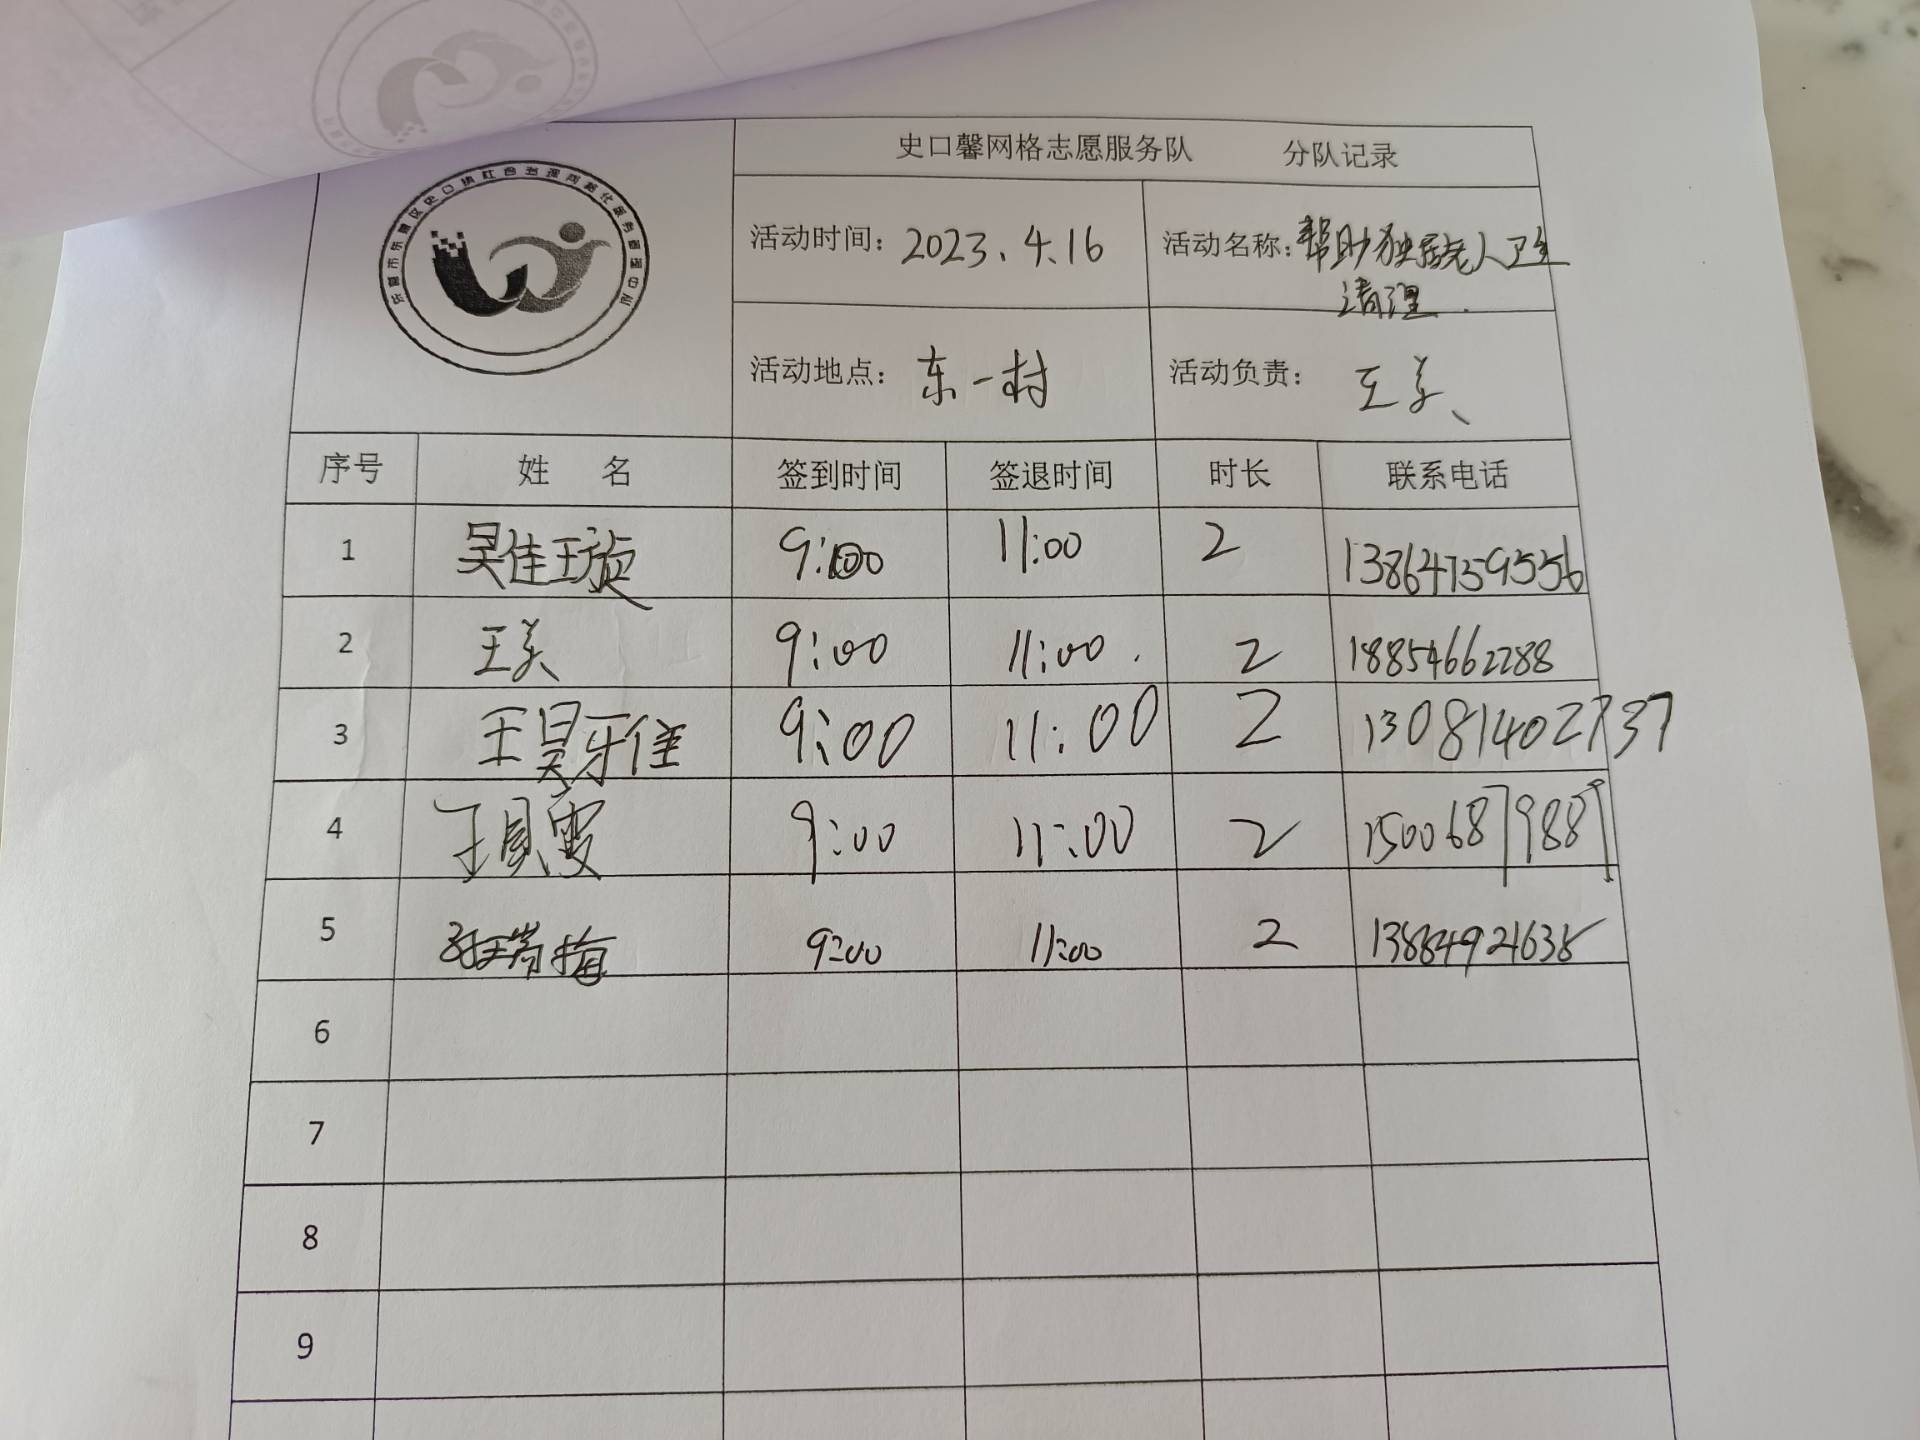 东营市东营区史口镇社会治理网格化服务管理中心
史口馨网格志愿服务队 分队记录
活动时间：2023.4.16 活动名称：帮助独居老人卫生
清理.
活动地点：东一村 活动负责：王美
序号 姓 名 签到时间 签退时间 时长 联系电话
1 吴佳璇 9:00 11:00 2 13864759556
2 王美 9:00 11:00. 2 18854662288
3 王昊雅 9:00 11:00 2 13081402737
4 9:00 11:00 2 15006879889
5 9:00 11:00 2
6
7
8
9